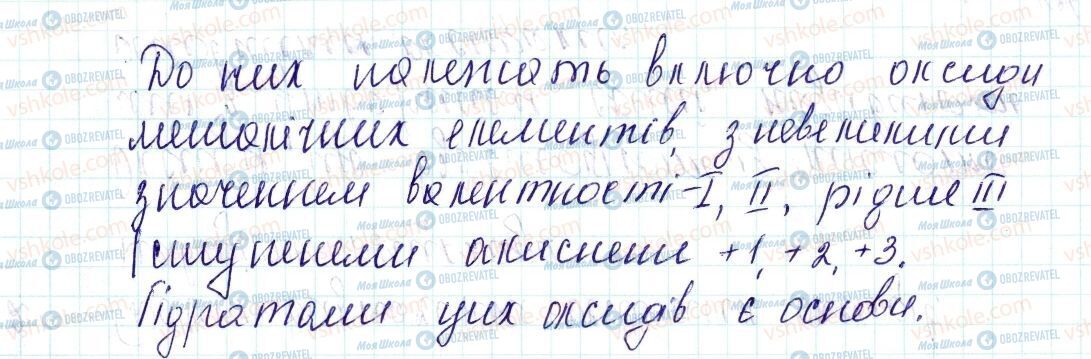 До них належать включно оксиди
металічних елементів, з невеликими
значенням валентності - I, II, рідше III
(ступенями окиснення +1, +2, +3.
Гідратами цих оксидів є основи.